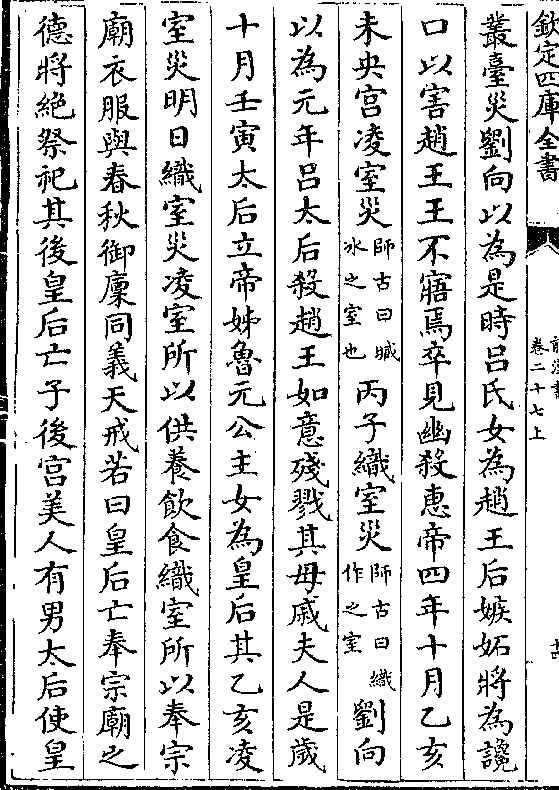 欽定四庫全書
卷二十七上
叢臺災劉向以為是時呂氏女為趙王后嫉妬將為讒
口以害趙王王不寤焉卒見幽殺惠帝四年十月乙亥
未央宫凌室災師古曰臧氷之室也丙子織室災師古曰織作之室劉向
以為元年呂太后殺趙王如意殘戮其母戚夫人是嵗
十月壬寅太后立帝姊魯元公主女為皇后其乙亥凌
室災明日織室災凌室所以供養飲食織室所以奉宗
廟衣服與春秋御廩同義天戒若曰皇后亡奉宗廟之
德將絶祭祀其後皇后亡子後宫美人有男太后使皇